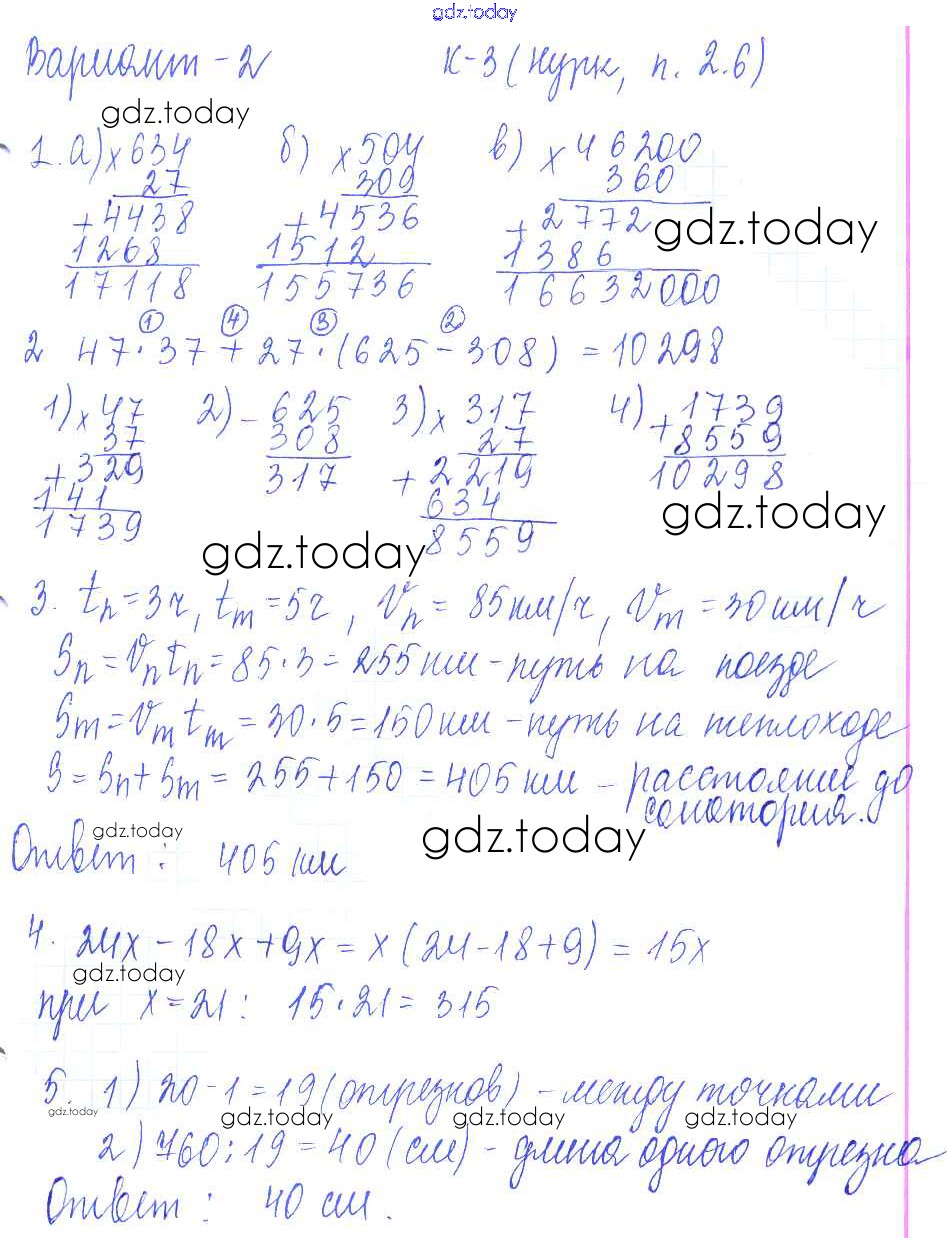 gdz.today
Вариант - 2 К-3 (Нурк, п. 2.6)
gdz.today
1. а) × 634 б) × 504 в) × 46200
27 309 360
+ 4438 + 4536 + 2772 gdz.today
1268 1512 1386
17118 155736 16632000
① ④ ③ ②
2 47 · 37 + 27 · (625 - 308) = 10298
1) × 47 2) - 625 3) × 317 4) + 1739
37 308 27 8559
+ 329 317 + 2219 10298
141 634 gdz.today
1739 gdz.today 8559
3. tп = 3ч, tт = 5ч, Vп = 85 км/ч, Vт = 30 км/ч
Sп = Vп tп = 85 · 3 = 255 км - путь на поезде
Sт = Vт tт = 30 · 5 = 150 км - путь на теплоходе
S = Sп + Sт = 255 + 150 = 405 км - расстояние до
санатория.
gdz.today gdz.today
Ответ: 405 км
4. 24x - 18x + 9x = x (24 - 18 + 9) = 15x
gdz.today
при x = 21: 15 · 21 = 315
5. 1) 20 - 1 = 19 (отрезков) - между точками
gdz.today gdz.today gdz.today gdz.today
2) 760 : 19 = 40 (см) - длина одного отрезка
Ответ: 40 см.